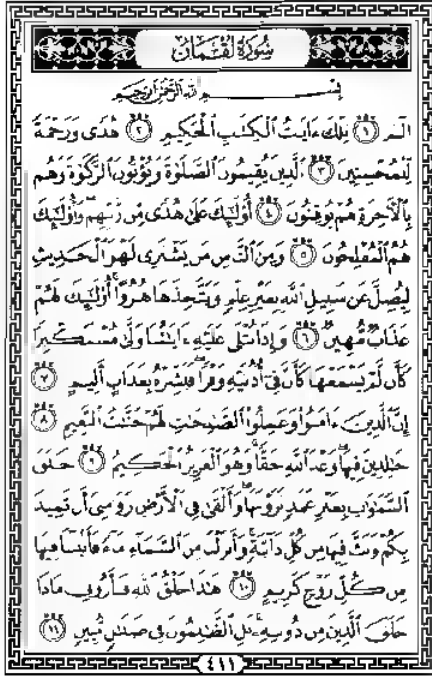 سُورَةُ لُقْمَان
بِسْمِ اللَّهِ الرَّحْمَٰنِ الرَّحِيمِ
الٓمٓ ١ تِلْكَ ءَايَٰتُ الْكِتَٰبِ الْحَكِيمِ ٢ هُدًى وَرَحْمَةً
لِّلْمُحْسِنِينَ ٣ الَّذِينَ يُقِيمُونَ الصَّلَوٰةَ وَيُؤْتُونَ الزَّكَوٰةَ وَهُم
بِالْأَخِرَةِ هُمْ يُوقِنُونَ ٤ أُوْلَٰٓئِكَ عَلَىٰ هُدًى مِّن رَّبِّهِمْ وَأُوْلَٰٓئِكَ
هُمُ الْمُفْلِحُونَ ٥ وَمِنَ النَّاسِ مَن يَشْتَرِى لَهْوَ الْحَدِيثِ
لِيُضِلَّ عَن سَبِيلِ اللَّهِ بِغَيْرِ عِلْمٍ وَيَتَّخِذَهَا هُزُوًا أُوْلَٰٓئِكَ لَهُمْ
عَذَابٌ مُّهِينٌ ٦ وَإِذَا تُتْلَىٰ عَلَيْهِ ءَايَٰتُنَا وَلَّىٰ مُسْتَكْبِرًا
كَأَن لَّمْ يَسْمَعْهَا كَأَنَّ فِىٓ أُذُنَيْهِ وَقْرًا فَبَشِّرْهُ بِعَذَابٍ أَلِيمٍ ٧
إِنَّ الَّذِينَ ءَامَنُوا وَعَمِلُوا الصَّٰلِحَٰتِ لَهُمْ جَنَّٰتُ النَّعِيمِ ٨
خَٰلِدِينَ فِيهَا وَعْدَ اللَّهِ حَقًّا وَهُوَ الْعَزِيزُ الْحَكِيمُ ٩ خَلَقَ
السَّمَٰوَٰتِ بِغَيْرِ عَمَدٍ تَرَوْنَهَا وَأَلْقَىٰ فِى الْأَرْضِ رَوَٰسِىَ أَن تَمِيدَ
بِكُمْ وَبَثَّ فِيهَا مِن كُلِّ دَآبَّةٍ وَأَنزَلْنَا مِنَ السَّمَآءِ مَآءً فَأَنۢبَتْنَا فِيهَا
مِن كُلِّ زَوْجٍ كَرِيمٍ ١٠ هَٰذَا خَلْقُ اللَّهِ فَأَرُونِى مَاذَا
خَلَقَ الَّذِينَ مِن دُونِهِ بَلِ الظَّٰلِمُونَ فِى ضَلَٰلٍ مُّبِينٍ ١١
٤١١